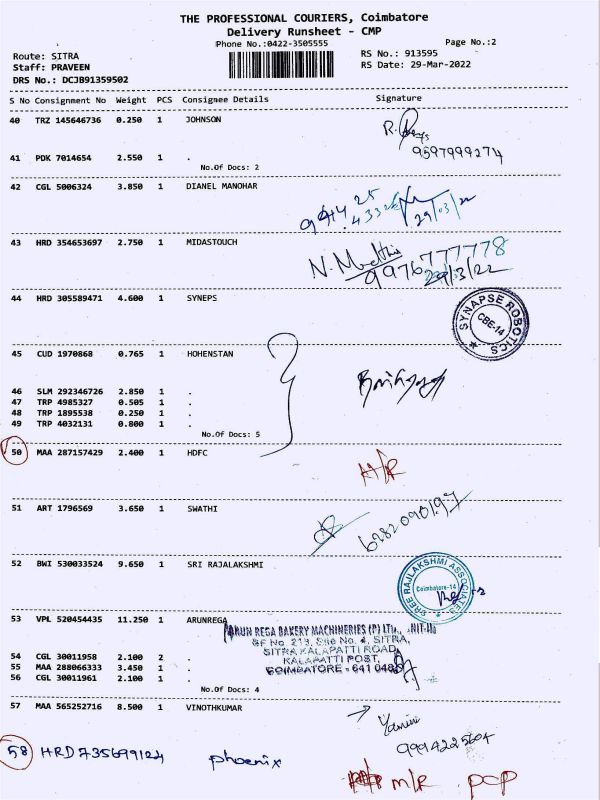 THE PROFESSIONAL COURIERS, Coimbatore
Delivery Runsheet - CMP
Phone No.:0422-3505555
Page No.:2
Route: SITRA
RS No.: 913595
Staff: PRAVEEN
RS Date: 29-Mar-2022
DRS No.: DCJB91359502
S No Consignment No Weight PCS Consignee Details Signature
40 TRZ 145646736 0.250 1 JOHNSON
9597999274
41 PDK 7014654 2.550 1 .
No.Of Docs: 2
42 CGL 5006324 3.850 1 DIANEL MANOHAR
29/03/22
43 HRD 354653697 2.750 1 MIDASTOUCH
9976777778
29/3/22
44 HRD 305589471 4.600 1 SYNEPS
SYNAPSE ROBOTICS
CBE-14
45 CUD 1970868 0.765 1 HOHENSTAN
46 SLM 292346726 2.850 1 .
47 TRP 4985327 0.505 1 .
48 TRP 1895538 0.250 1 .
49 TRP 4032131 0.800 1 .
No.Of Docs: 5
50 MAA 287157429 2.400 1 HDFC
51 ART 1796569 3.650 1 SWATHI
6282090197
52 BWI 530033524 9.650 1 SRI RAJALAKSHMI
SREE RAJLAKSHMI ASSOCIATES
Coimbatore-14
53 VPL 520454435 11.250 1 ARUNREGA
ARUN REGA BAKERY MACHINERIES (P) LTD., UNIT-II
SF No. 213, Site No. 4, SITRA,
SITRA KALAPATTI ROAD,
54 CGL 30011958 2.100 2 .
KALAPATTI POST,
55 MAA 288066333 3.450 1 .
COIMBATORE - 641 048
56 CGL 30011961 2.100 1 .
No.Of Docs: 4
57 MAA 565252716 8.500 1 VINOTHKUMAR
Yamini
9994225604
58 HRD735699124 phoenix
M/R POP